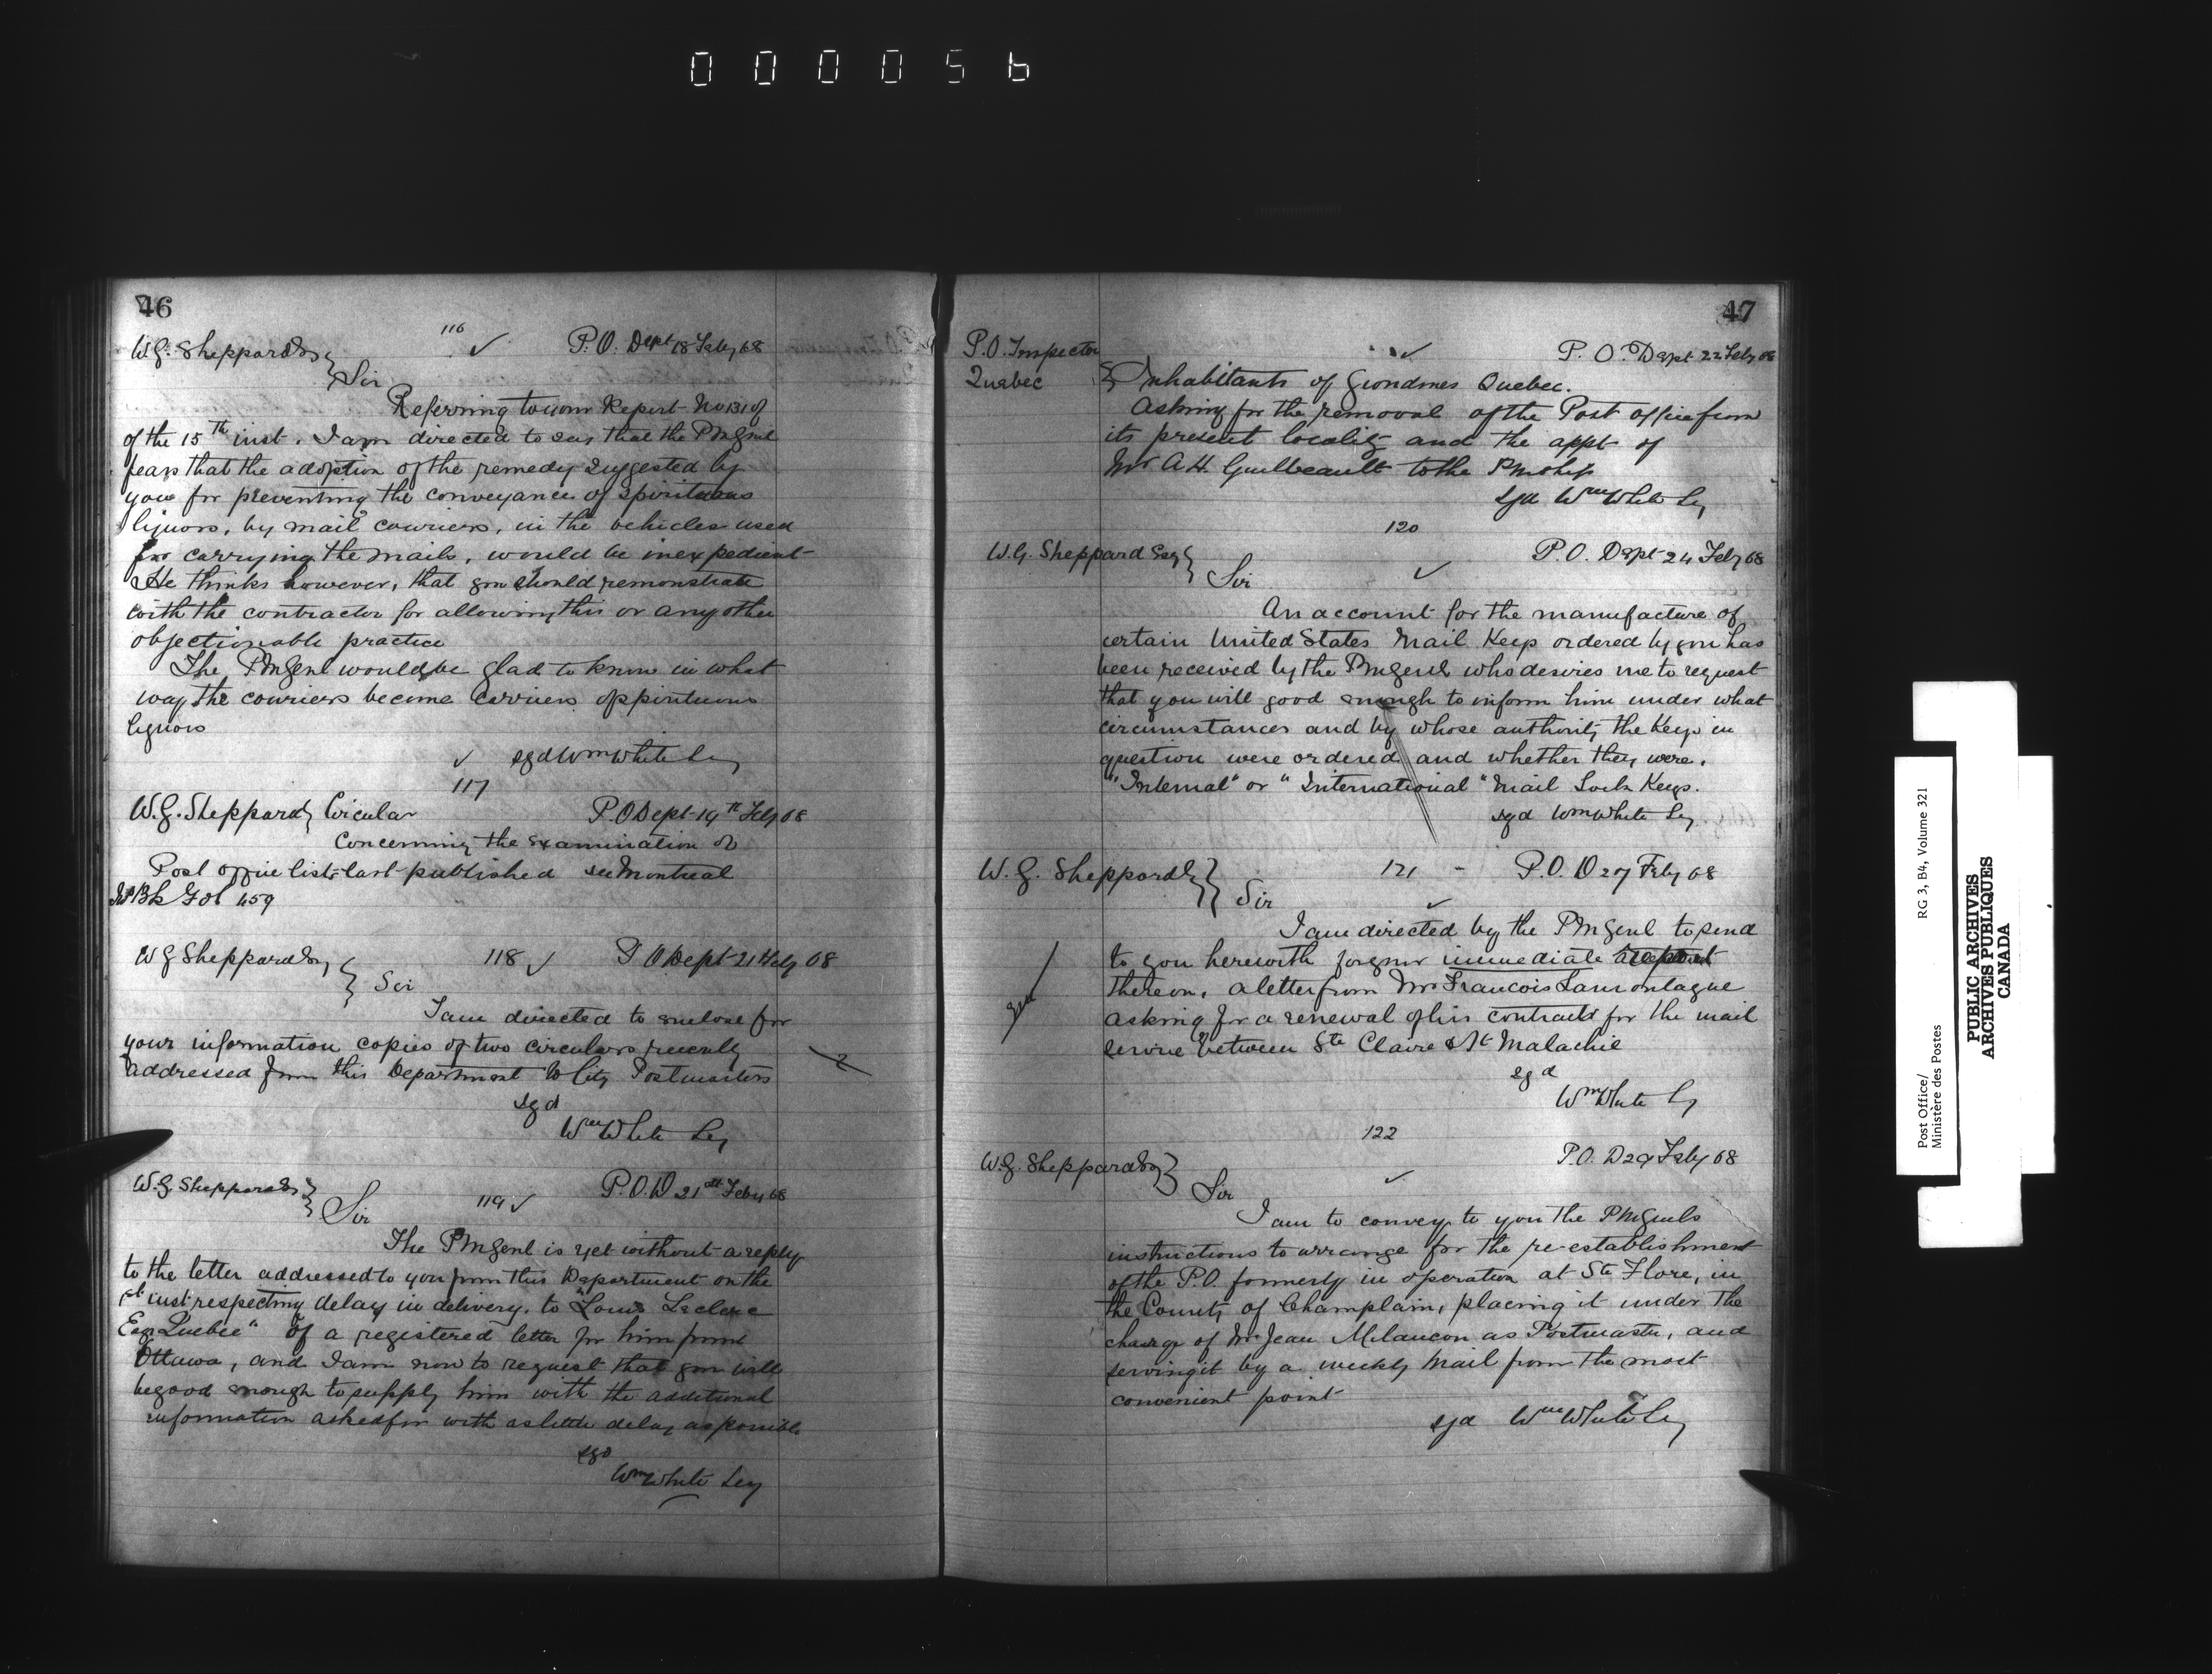 000056
46
116 ✓ P.O. Dept 18 Feby 68
W.G. Sheppard Esq } Sir
Referring to your Report No 131 of
of the 15th inst. I am directed to say that the PMGenl
fears that the adoption of the remedy suggested by
you for preventing the conveyance of spirituous
liquors, by mail couriers, in the vehicles used
for carrying the mails, would be inexpedient
He thinks however, that you should remonstrate
with the contractor for allowing this or any other
objectionable practice
The PMGenl would be glad to know in what
way the couriers become carriers of spirituous
liquors
✓ sgd Wm White Sey
117
W.G. Sheppard } Circular P.O Dept 19th Feby 68
Concerning the examination of
Post office lists last published see Montreal
Bk Fol 459
W G Sheppard Esq } Sir 118 ✓ P O Dept 21 Feby 68
I am directed to enclose for
your information copies of two circulars recently
addressed from this Department to City Postmasters
sgd
Wm White Sey
W.G. Sheppard Esq } Sir 119 ✓ P.O.D 21st Feby 68
The PMGenl is yet without a reply
to the letter addressed to you from this Department on the
1st inst respecting delay in delivery, to "Louis Leclerc
Esq Quebec" of a registered letter for him from
Ottawa, and I am now to request that you will
be good enough to supply him with the additional
information asked for with as little delay as possible
sgd
Wm White Sey
47
P.O. Inspector
Quebec
✓ P.O. Dept 22 Feby 68
Inhabitants of Grondines Quebec.
Asking for the removal of the Post office from
its present locality and the appt of
Mr A.H. Guilbeault to the Pmship
sgd Wm White Sey
120
W.G. Sheppard Esq } Sir ✓ P.O. Dept 24 Feby 68
An account for the manufacture of
certain United States Mail Keys ordered by you has
been received by the PMGenl who desires me to request
that you will good enough to inform him under what
circumstances and by whose authority the Keys in
question were ordered and whether they were.
"Internal" or "International" Mail Lock Keys.
sgd Wm White Sey
W.G. Sheppard Esq } Sir 121 - P.O.D 27 Feby 68
✓
I am directed by the PMGenl to send
to you herewith for your immediate report
thereon, a letter from Mr Francois Lamontague
asking for a renewal of his contract for the mail
service between Ste Claire & St Malachie
sgd
Wm White Sy
122
W.G. Sheppard Esq } Sir ✓ P.O. D 29 Feby 68
I am to convey to you the PMGenls
instructions to arrange for the re-establishment
of the P.O. formerly in operation at Ste Flore, in
the County of Champlain, placing it under the
charge of Mr Jean Milancon as Postmaster, and
serving it by a weekly mail from the most
convenient point
sgd Wm White Sey
Post Office/
Ministère des Postes
RG 3, B4, Volume 321
PUBLIC ARCHIVES
ARCHIVES PUBLIQUES
CANADA